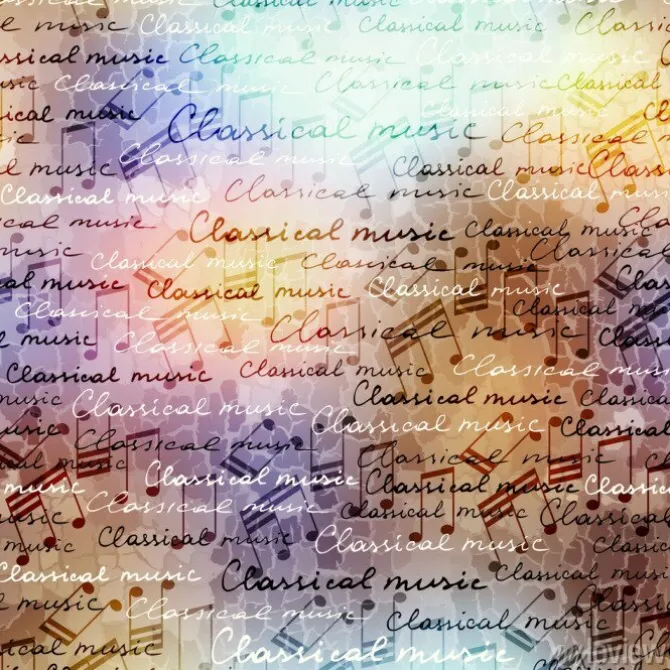 Classical music
Classical music
music Classical
Classical music Classical music Classical music
Classical music Classical music Classical
Classical music
Classical music
Classical music Classical music
Classical music
Classical music Classical
Classical music Classical music Classical music
Classical music Classical music Classical music
Classical music Classical music Classical music
Classical music Classical music Classical music Classical
Classical music
Classical music Classical music
Classical music Classical music
Classical music Classical music Classical music
Classical music Classical music
Classical music Classical music Classical
Classical music Classical music Classical music
Classical music Classical music
Classical music Classical music Classical
Classical music Classical music Classical
Classical music Classical music Classical
Classical music Classical music Classical music
Classical music Classical
Classical music Classical music
Classical music Classical music